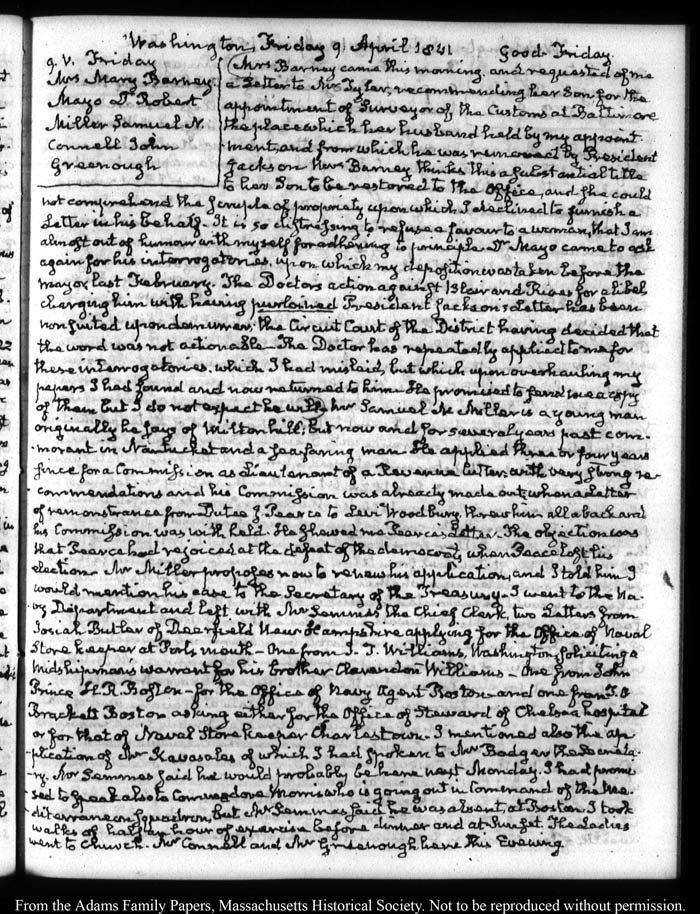 Washington, Friday 9. April 1841 Good Friday.
9. V. Friday
Mrs Mary Barney.
Mayo D. Robert
Miller Samuel N.
Connell John
Greenough
Mrs Barney came this morning, and requested of me
a Letter to Mr Tyler, recommending her Son for the
appointment of Surveyor of the Customs at Baltimore
the place which her husband held by my appoint-
ment, and from which he was removed by President
Jackson. Mrs Barney thinks this a substantial title
to her Son to be restored to the Office, and she could
not comprehend the scruple of propriety upon which I declined to furnish a
Letter in his behalf. It is so distressing to refuse a favour to a woman, that I am
almost out of humour with myself for adhering to principle. Dr Mayo came to ask
again for his interrogatories, upon which my deposition was taken before the
mayor last February. The Doctor's action against Blair and Rives for a libel
charging him with having purloined President Jackson's Letter has been
nonsuited upon demurrer, the Circuit Court of the District having decided that
the word was not actionable. The Doctor has repeatedly applied to me for
these interrogatories, which I had mislaid, but which upon overhauling my
papers I had found and now returned to him. He promised to send me a copy
of them but I do not expect he will. Mr Samuel N. Miller is a young man
originally he says of Milton hill, but now and for several years past com-
morant in Nantucket and a seafaring man. He applied three or four years
since for a Commission as Lieutenant of a Revenue Cutter, with very strong re-
commendations and his Commission was already made out, when a Letter
of remonstrance from Dutee J. Pearce to Levi Woodbury, threw him all aback and
his Commission was withheld. He shewed me Pearce's Letter. The objection was
that Pearce had rejoiced at the defeat of the democrats, when Peace lost his
election. Mr Miller proposes now to renew his application, and I told him I
would mention his case to the Secretary of the Treasury. I went to the Na-
vy Department and left with Mr Semmes the Chief Clerk, two Letters from
Josiah Butler of Deerfield New Hampshire applying for the Office of Naval
Store keeper at Portsmouth - One from J. T. Williams, Washington, soliciting a
Midshipman's warrant for his brother Clarendon Williams - One from John
Prince H. R. Boston - for the Office of Navy Agent Boston - and one from
Brackett Boston asking either for the Office of Steward of Chelsea hospital
or for that of Naval Storekeeper Charlestown. I mentioned also the ap-
plication of Mr Kavasales of which I had spoken to Mr Badger the Secreta-
ry. Mr Semmes said he would probably be here next Monday. I had promi-
sed to speak also to Commodore Morris who is going out in Command of the Me-
diterranean Squadron, but Mr Semmes said he was absent, at Boston. I took
walks of half an hour of exercise before dinner and at Sunset. The Ladies
went to Church. Mr Connell and Mr Greenough here this Evening
From the Adams Family Papers, Massachusetts Historical Society. Not to be reproduced without permission.